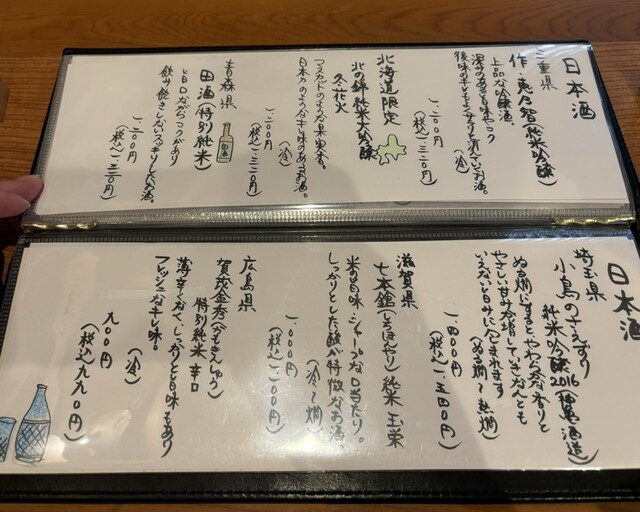 日本酒
三重県
作・恵乃智(純米吟醸)
上品な吟醸酒。
深みのある旨味やコク
後味のキレもよくサラリと消えていくお酒。
(冷)
一、二〇〇円
(税込一、三二〇円)
北海道限定
北の錦 純米大吟醸
冬花火
マスカットのような果実香。
日本刀のようなキレ味のあるお酒。
(冷)
一、二〇〇円
(税込一、三二〇円)
青森県
田酒(特別純米)
辛口ながらコクがあり
飲み飽きしないスッキリしたお酒。
一、二〇〇円
(税込一、三二〇円)
日本酒
埼玉県
小鳥のさえずり
純米吟醸2016(神亀酒造)
ぬる燗にするとやわらかな香りと
やさしい甘みが増していきなんとも
いえない旨みに包まれます
(ぬる燗〜熱燗)
一、四〇〇円
(税込一、五四〇円)
滋賀県
七本鎗(しちほんやり)純米 玉栄
米の旨味・シャープな口当たり。
しっかりとした酸が特徴なお酒
(冷〜燗)
一、〇〇〇円
(税込一、一〇〇円)
広島県
賀茂金秀(かもきんしゅう)
特別純米 辛口
薄辛くみえて、しっかりと旨味もあり
フレッシュなキレ味。
(冷)
九〇〇円
(税込九九〇円)